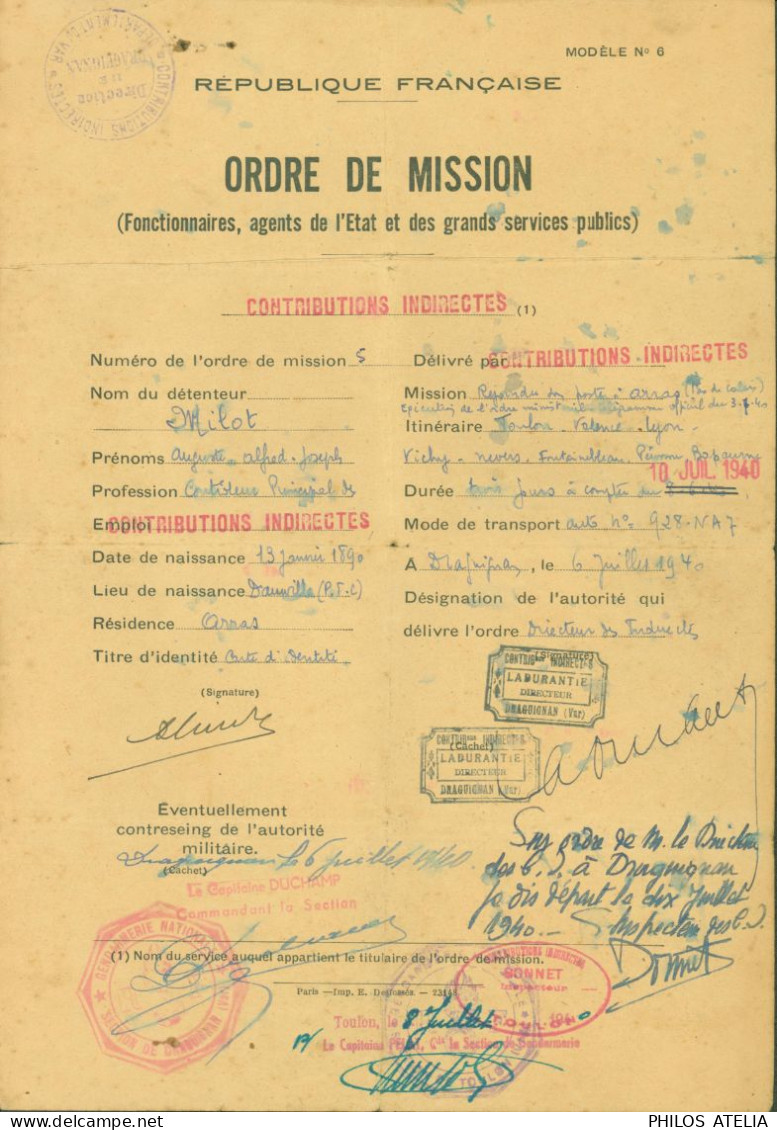 CONTRIBUTIONS INDIRECTES
DÉPARTEMENT DU VAR
Direction
DE
DRAGUIGNAN
MODÈLE No 6
RÉPUBLIQUE FRANÇAISE
ORDRE DE MISSION
(Fonctionnaires, agents de l'Etat et des grands services publics)
CONTRIBUTIONS INDIRECTES (1)
Numéro de l'ordre de mission 5
Nom du détenteur
Milot
Prénoms Auguste-Alfred-Joseph
Profession Contrôleur Principal des
Emploi CONTRIBUTIONS INDIRECTES
Date de naissance 13 janvier 1890
Lieu de naissance (P.d.C)
Résidence Arras
Titre d'identité Carte d'Identité
(Signature)
Délivré par CONTRIBUTIONS INDIRECTES
Mission Rejoindre son poste à Arras (Pas de Calais)
Exécution de l'ordre ministériel télégramme officiel du
Itinéraire Toulon - Valence - Lyon -
Vichy - Nevers - Fontainebleau, Péronne, Bapaume
10 JUIL 1940
Durée trois jours à compter du
Mode de transport auto no 928-NA7
A Draguignan, le 6 juillet 1940
Désignation de l'autorité qui
délivre l'ordre Directeur des Indirectes
(Signature)
CONTRIBons INDIRECTES
LABURANTIE
DIRECTEUR
DRAGUIGNAN (Var)
(Cachet)
CONTRIBons INDIRECTES
LABURANTIE
DIRECTEUR
DRAGUIGNAN (Var)
Éventuellement
contreseing de l'autorité
militaire.
Draguignan le 6 juillet 1940
(Cachet)
Le Capitaine DUCHAMP
Commandant la Section
GENDARMERIE NATIONALE
SECTION DE DRAGUIGNAN
Sur ordre de M. le Directeur
des C. I. à Draguignan
je dis départ le dix Juillet
1940. — L'Inspecteur des C. I.
Bonnet
(1) Nom du service auquel appartient le titulaire de l'ordre de mission.
Paris—Imp. E. Desfossés.
CONTRIBUTIONS INDIRECTES
BONNET
Inspecteur
TOULON
Toulon, le 8 Juillet
Le Capitaine Cdt la Section de Gendarmerie
TOULON
PHILOS ATELIA